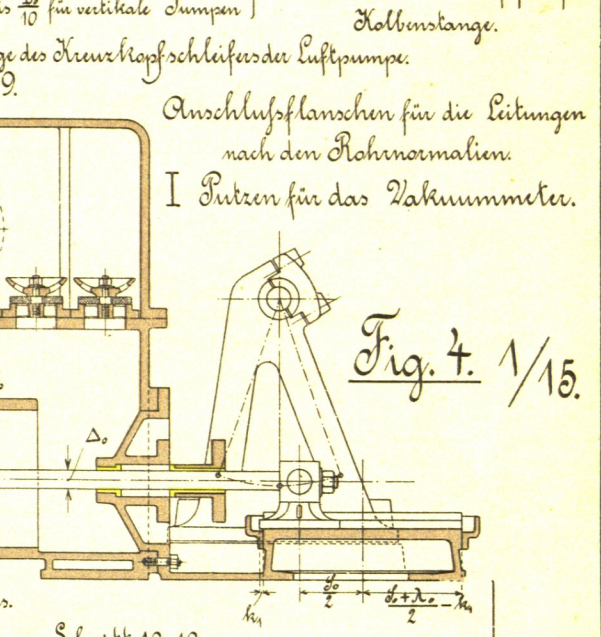 10 für vertikale Pumpen
Kolbenstange.
ge des Kreuzkopfschleifers der Luftpumpe.
9.
Anschlußflanschen für die Leitungen
nach den Rohrnormalien.
I Putzen für das Vakuummeter.
Fig. 4. 1/15.
Δ₀
k₁